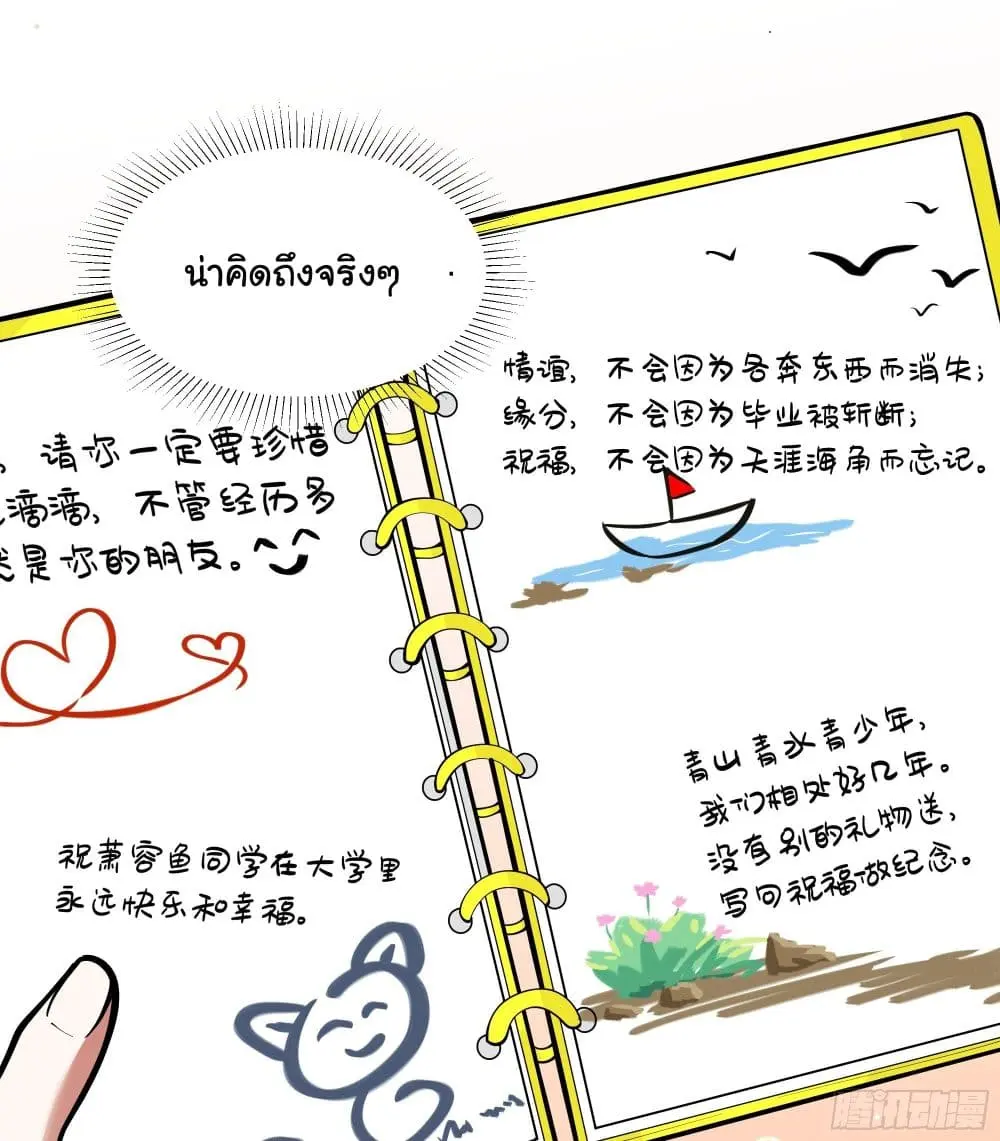 น่าคิดถึงจริงๆ
, 请你一定要珍惜
滴滴, 不管经历多
是你的朋友。
祝萧容鱼同学在大学里
永远快乐和幸福。
情谊, 不会因为各奔东西而消失;
缘分, 不会因为毕业被斩断;
祝福, 不会因为天涯海角而忘记。
青山青水青少年,
我们相处好几年。
没有别的礼物送,
写句祝福做纪念。
腾讯动漫